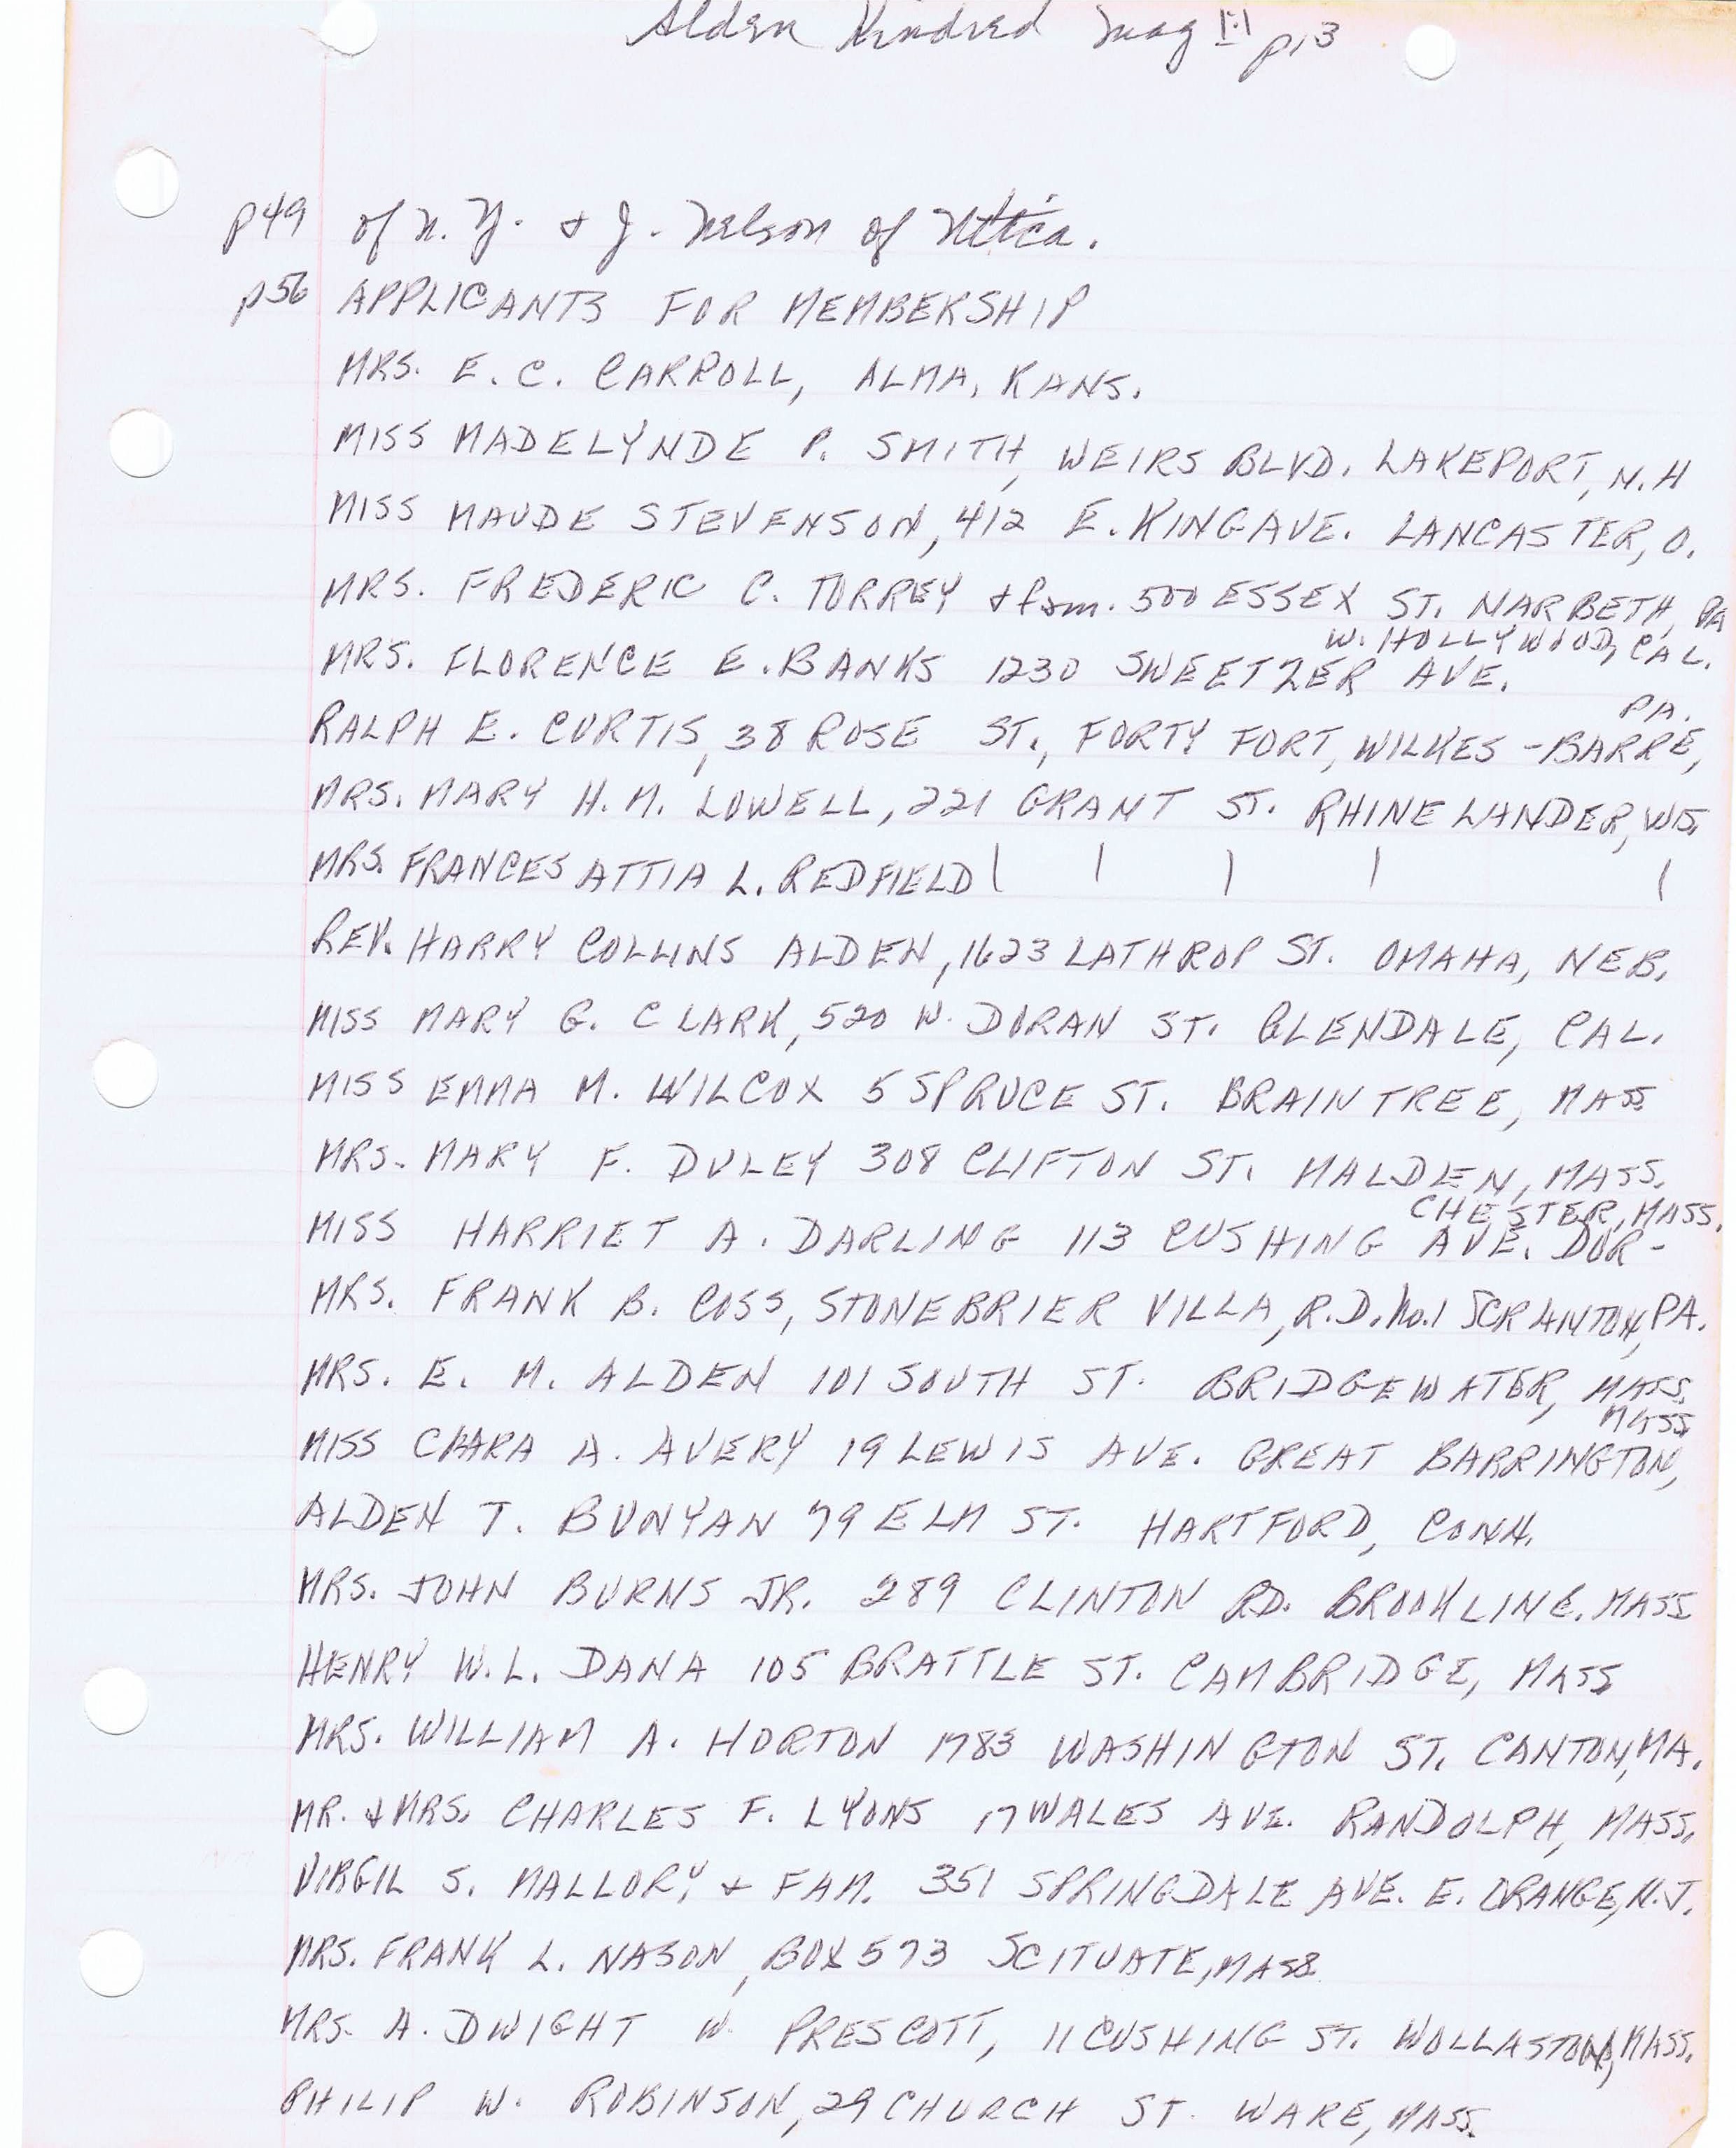 Alden Kindred Mag 1:1 p, 3
p49 of N. Y. & J. Nelson of Utica.
p56 APPLICANTS FOR MEMBERSHIP
MRS. E. C. CARROLL, ALMA, KANS.
MISS MADELYNDE P. SMITH, WEIRS BLVD. LAKEPORT, N.H
MISS MAUDE STEVENSON, 412 E. KING AVE. LANCASTER, O.
MRS. FREDERIC C. TORREY & fam. 500 ESSEX ST. NARBETH, PA
W. HOLLYWOOD, CAL.
MRS. FLORENCE E. BANKS 1230 SWEETZER AVE.
PA.
RALPH E. CURTIS, 38 ROSE ST., FORTY FORT, WILKES-BARRE,
MRS. MARY H. M. LOWELL, 221 GRANT ST. RHINELANDER, WIS.
MRS. FRANCES ATTIA L. REDFIELD \ \ \ \ \
REV. HARRY COLLINS ALDEN, 1623 LATHROP ST. OMAHA, NEB.
MISS MARY G. CLARK, 520 W. DORAN ST. GLENDALE, CAL.
MISS EMMA M. WILCOX 5 SPRUCE ST. BRAINTREE, MASS
MRS. MARY F. DULEY 308 CLIFTON ST. MALDEN, MASS.
CHESTER, MASS.
MISS HARRIET A. DARLING 113 CUSHING AVE. DOR-
MRS. FRANK B. COSS, STONEBRIER VILLA, R.D. No. 1 SCRANTON, PA.
MRS. E. M. ALDEN 101 SOUTH ST. BRIDGEWATER, MASS.
MASS
MISS CLARA A. AVERY 19 LEWIS AVE. GREAT BARRINGTON,
ALDEN T. BUNYAN 79 ELM ST. HARTFORD, CONN.
MRS. JOHN BURNS JR. 289 CLINTON RD. BROOKLINE. MASS
HENRY W. L. DANA 105 BRATTLE ST. CAMBRIDGE, MASS
MRS. WILLIAM A. HORTON 1783 WASHINGTON ST. CANTON, MA.
MR. & MRS. CHARLES F. LYONS 17 WALES AVE. RANDOLPH, MASS.
VIRGIL S. MALLORY & FAM. 351 SPRINGDALE AVE. E. ORANGE, N.J.
MRS. FRANK L. NASON, BOX 573 SCITUATE, MASS
MRS. A. DWIGHT W. PRESCOTT, 11 CUSHING ST. WOLLASTON, MASS.
PHILIP W. ROBINSON, 29 CHURCH ST. WARE, MASS.